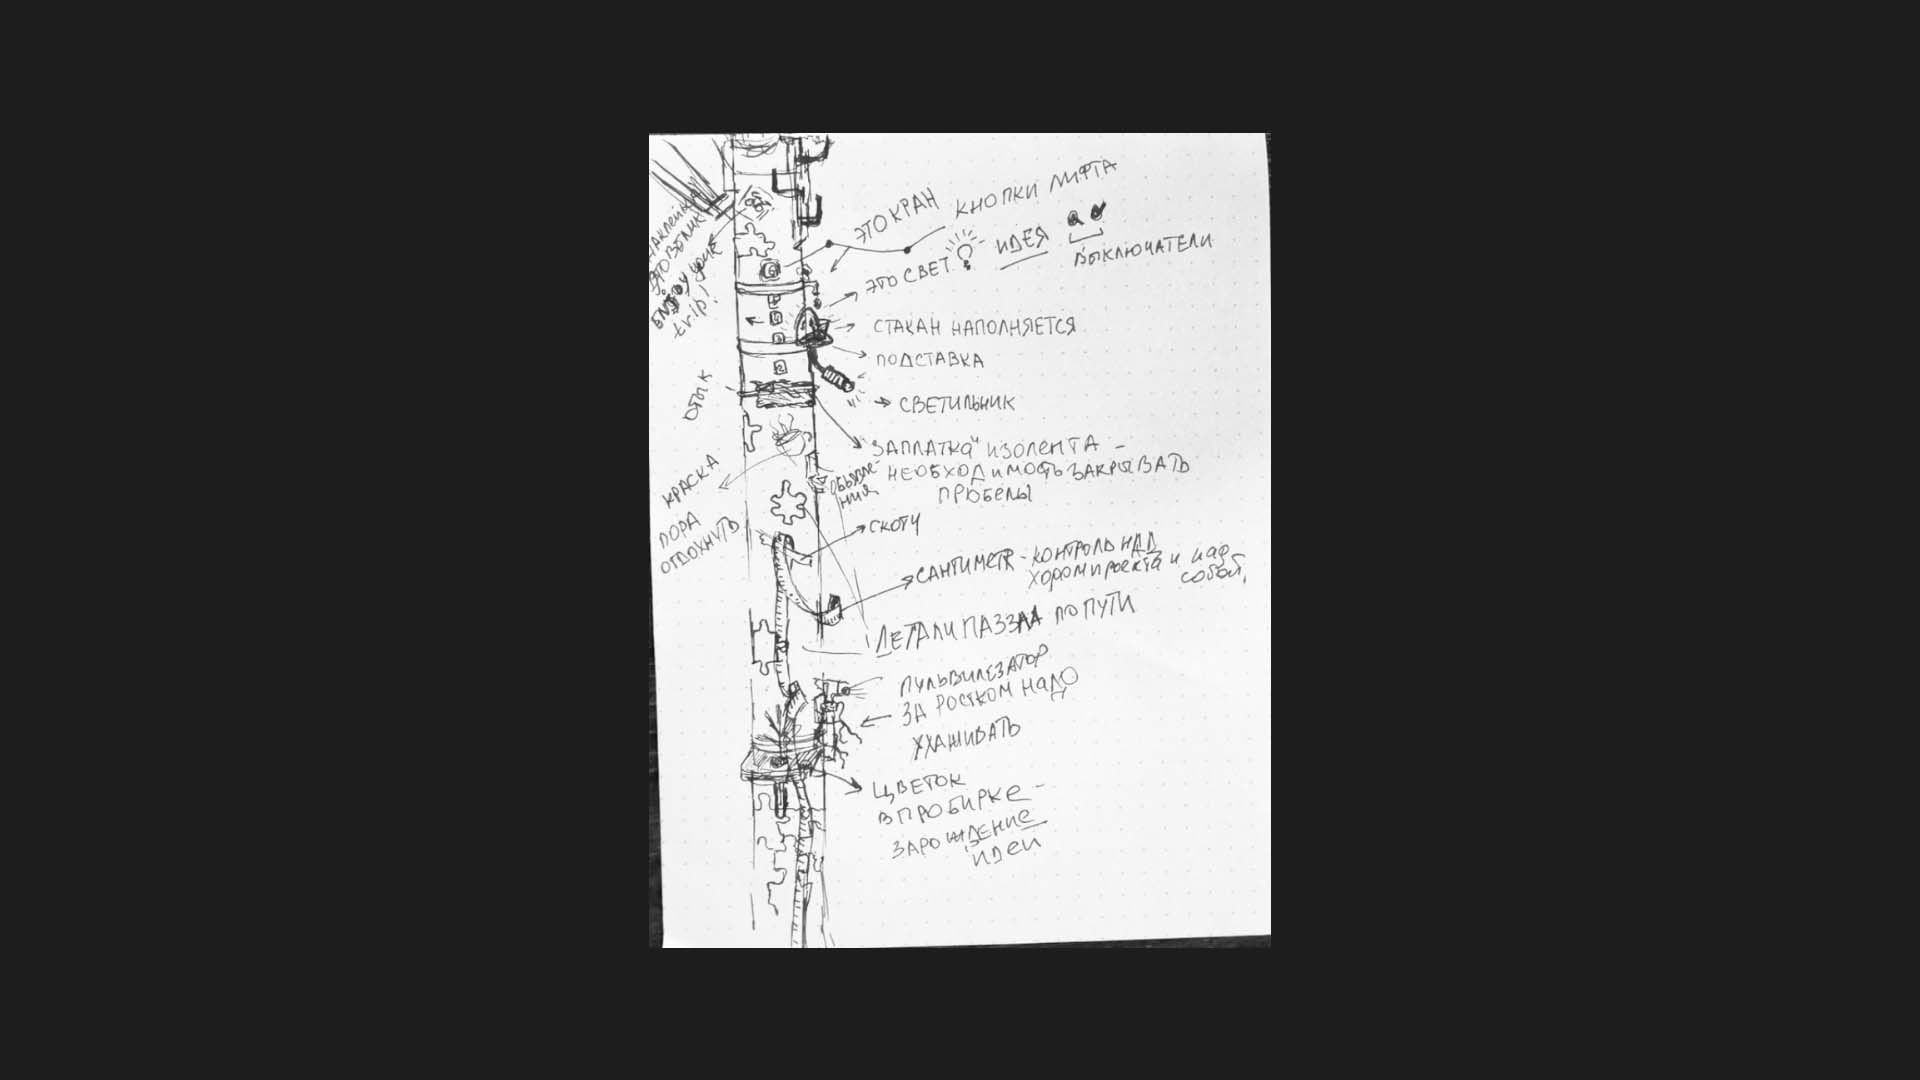 ЭТО КРАН
КНОПКИ ЛИФТА
ЭТО СВЕТ
ИДЕЯ
ВЫКЛЮЧАТЕЛИ
СТАКАН НАПОЛНЯЕТСЯ
ПОДСТАВКА
СВЕТИЛЬНИК
"ЗАПЛАТКА" ИЗОЛЕНТА -
НЕОБХОДИМОСТЬ ЗАКРЫВАТЬ
ПРОБЕЛЫ
ОБЪЯВЛЕ-
НИЯ
СКОТЧ
САНТИМЕТР - КОНТРОЛЬ НАД
ХОДОМ ПРОЕКТА И НАД
СОБОЙ.
ДЕТАЛИ ПАЗЗЛА ПО ПУТИ
ПУЛЬВИЛЕЗАТОР
ЗА РОСТКОМ НАДО
УХАЖИВАТЬ
ЦВЕТОК
В ПРОБИРКЕ -
ЗАРОЖДЕНИЕ
ИДЕИ
НАКЛЕЙКА
ENJOY YOUR
trip!
КРАСКА
ПОРА
ОТДОХНУТЬ